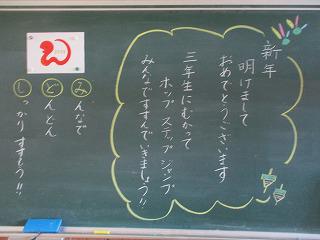 新年
明けまして
おめでとうございます
三年生にむかって
ホップ ステップ ジャンプ
みんなですすんでいきましょう!!
みんなで
どんどん
しっかり すすもう!!